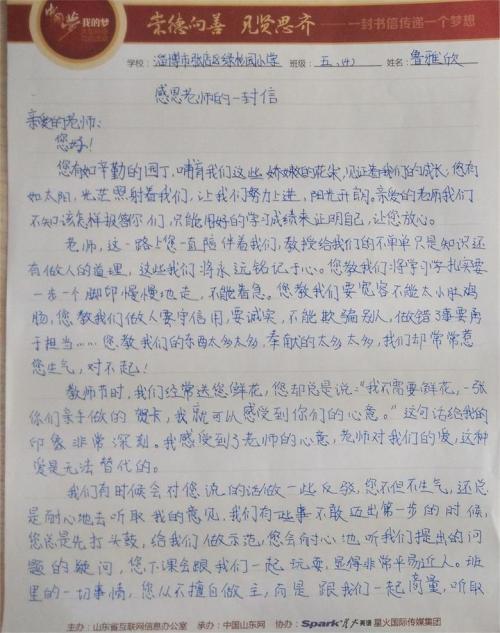 中国梦 我的梦
崇德向善 见贤思齐 一封书信传递一个梦想
学校：淄博市张店区绿杉园小学 班级：五、(4) 姓名：鲁雅欣
感恩老师的一封信
亲爱的老师：
您好！
您有如辛勤的园丁，哺育我们这些娇嫩的花朵，见证着我们的成长，您有
如太阳，光芒照射着我们，让我们努力上进，阳光开朗。亲爱的老师我们
不知该怎样报答你们，只能用好的学习成绩来证明自己，让您放心。
老师，这一路上您一直陪伴着我们，教授给我们的不单单只是知识还
有做人的道理，这些我们将永远铭记于心。您教我们将学习学扎实要
一步一个脚印慢慢地走，不能着急。您教我们要宽容不能太小肚鸡
肠，您教我们做人要守信用，要诚实，不能欺骗别人，做错了事要勇
于担当……您教我们的东西太多太多，奉献的太多太多，我们却常常惹
您生气，对不起！
教师节时，我们经常送您鲜花，您却总是说：“我不需要鲜花，一张
你们亲手做的贺卡，我就可以感受到你们的心意。”这句话给我的
印象非常深刻。我感受到了老师的心意，老师对我们的爱，这种
爱是无法替代的。
我们有时候会对您说的话做一些反驳，您不但不生气，还总
是耐心地去听取我的意见，我们有一些事不敢迈出第一步的时候，
您总是先打头鼓，给我们做示范，您会耐心地听我们提出的问
题的疑问，您下课会跟我们一起玩耍，显得非常平易近人。班
里的一切事情，您从不擅自做主，而是跟我们一起商量，听取
主办：山东省互联网信息办公室 承办：中国山东网 协办：Spark 星火英语 星火国际传媒集团